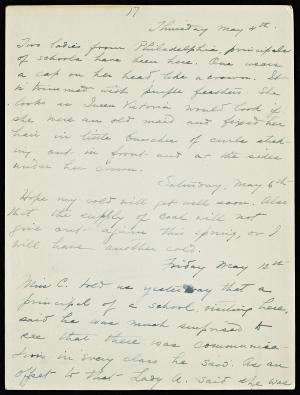 17
Thursday May 4th.
Two ladies from Philadelphia, principals
of schools have been here. One wears
a cap on her head like a crown. It
is trimmed with purple feathers. She
looks as Queen Victoria would look if
she were an old maid and fixed her
hair in little bunches of curls stick-
ing out in front and at the sides
under her crown.
Saturday, May 6th
Hope my cold will get well soon. Also
that the supply of coal will not
give out again this spring, or I
will have another cold.
Friday May 12th
Miss C. told us yesterday that a
principal of a school, visiting here,
said he was much surprised to
see that there was communica-
tion in every class he said. As an
offset to that Lady A. said she was